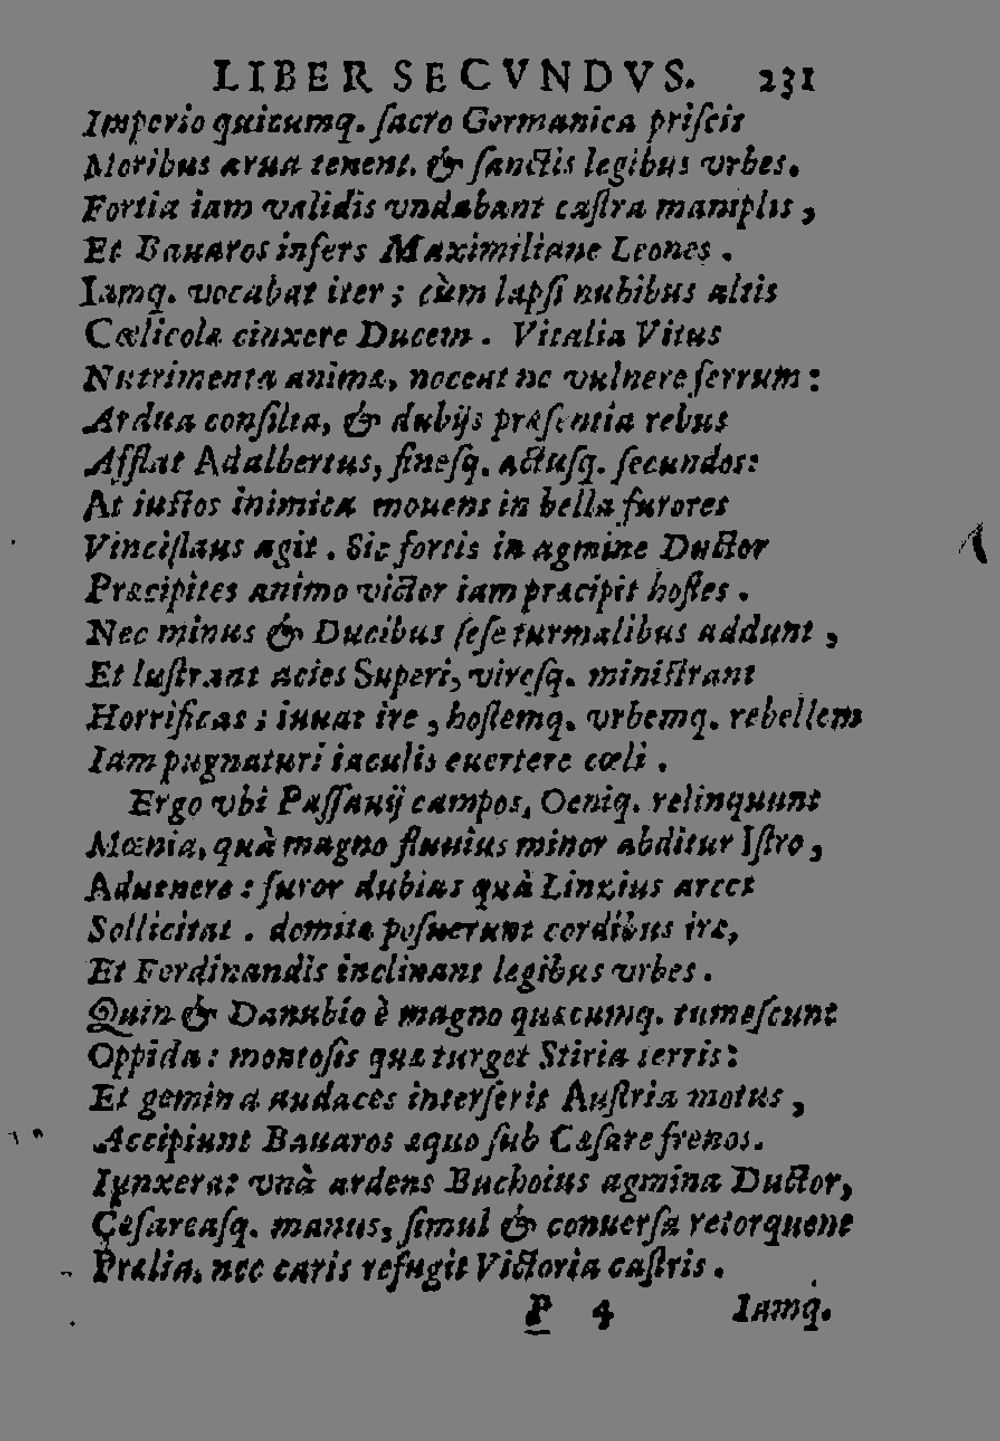 LIBER SECVNDVS. 231
Imperio quicumq. ſacro Germanica priſcis
Moribus arua tenent. & ſanctis legibus vrbes.
Fortia iam validis vndabant caſtra maniplis,
Et Bauaros infers Maximiliane Leones.
Iamq. vocabat iter; cùm lapſi nubibus altis
Cœlicolæ cinxere Ducem. Vitalia Vitus
Nutrimenta animæ, noceat ne vulnere ferrum:
Ardua conſilia, & dubijs præſentia rebus
Afflat Adalbertus, fineſq. actuſq. ſecundos:
At iuſtos inimica mouens in bella furores
Vinciſlaus agit. Sic fortis in agmine Ductor
Præcipites animo victor iam præcipit hoſtes.
Nec minus & Ducibus ſeſe turmalibus addunt,
Et luſtrant acies Superi, vireſq. miniſtrant
Horrificas; iuuat ire, hoſtemq. vrbemq. rebellem
Iam pugnaturi iaculis euertere cœli.
Ergo vbi Paſſauij campos, Oeniq. relinquunt
Mœnia, quà magno fluuius minor abditur Iſtro,
Aduenere: furor dubias quà Linzius arces
Sollicitat. domitæ poſuerunt cordibus iræ,
Et Ferdinandis inclinant legibus vrbes.
Quin & Danubio è magno quæcumq. tumeſcunt
Oppida: montoſis quæ turget Stiria terris:
Et gemina audaces interſerit Auſtria motus,
Accipiunt Bauaros æquo ſub Cæſare frenos.
Iunxerat vnà ardens Buchoius agmina Ductor,
Ceſareaſq. manus, ſimul & conuerſa retorquens
Prælia, nec caris refugit Victoria caſtris.
P 4 Iamq.